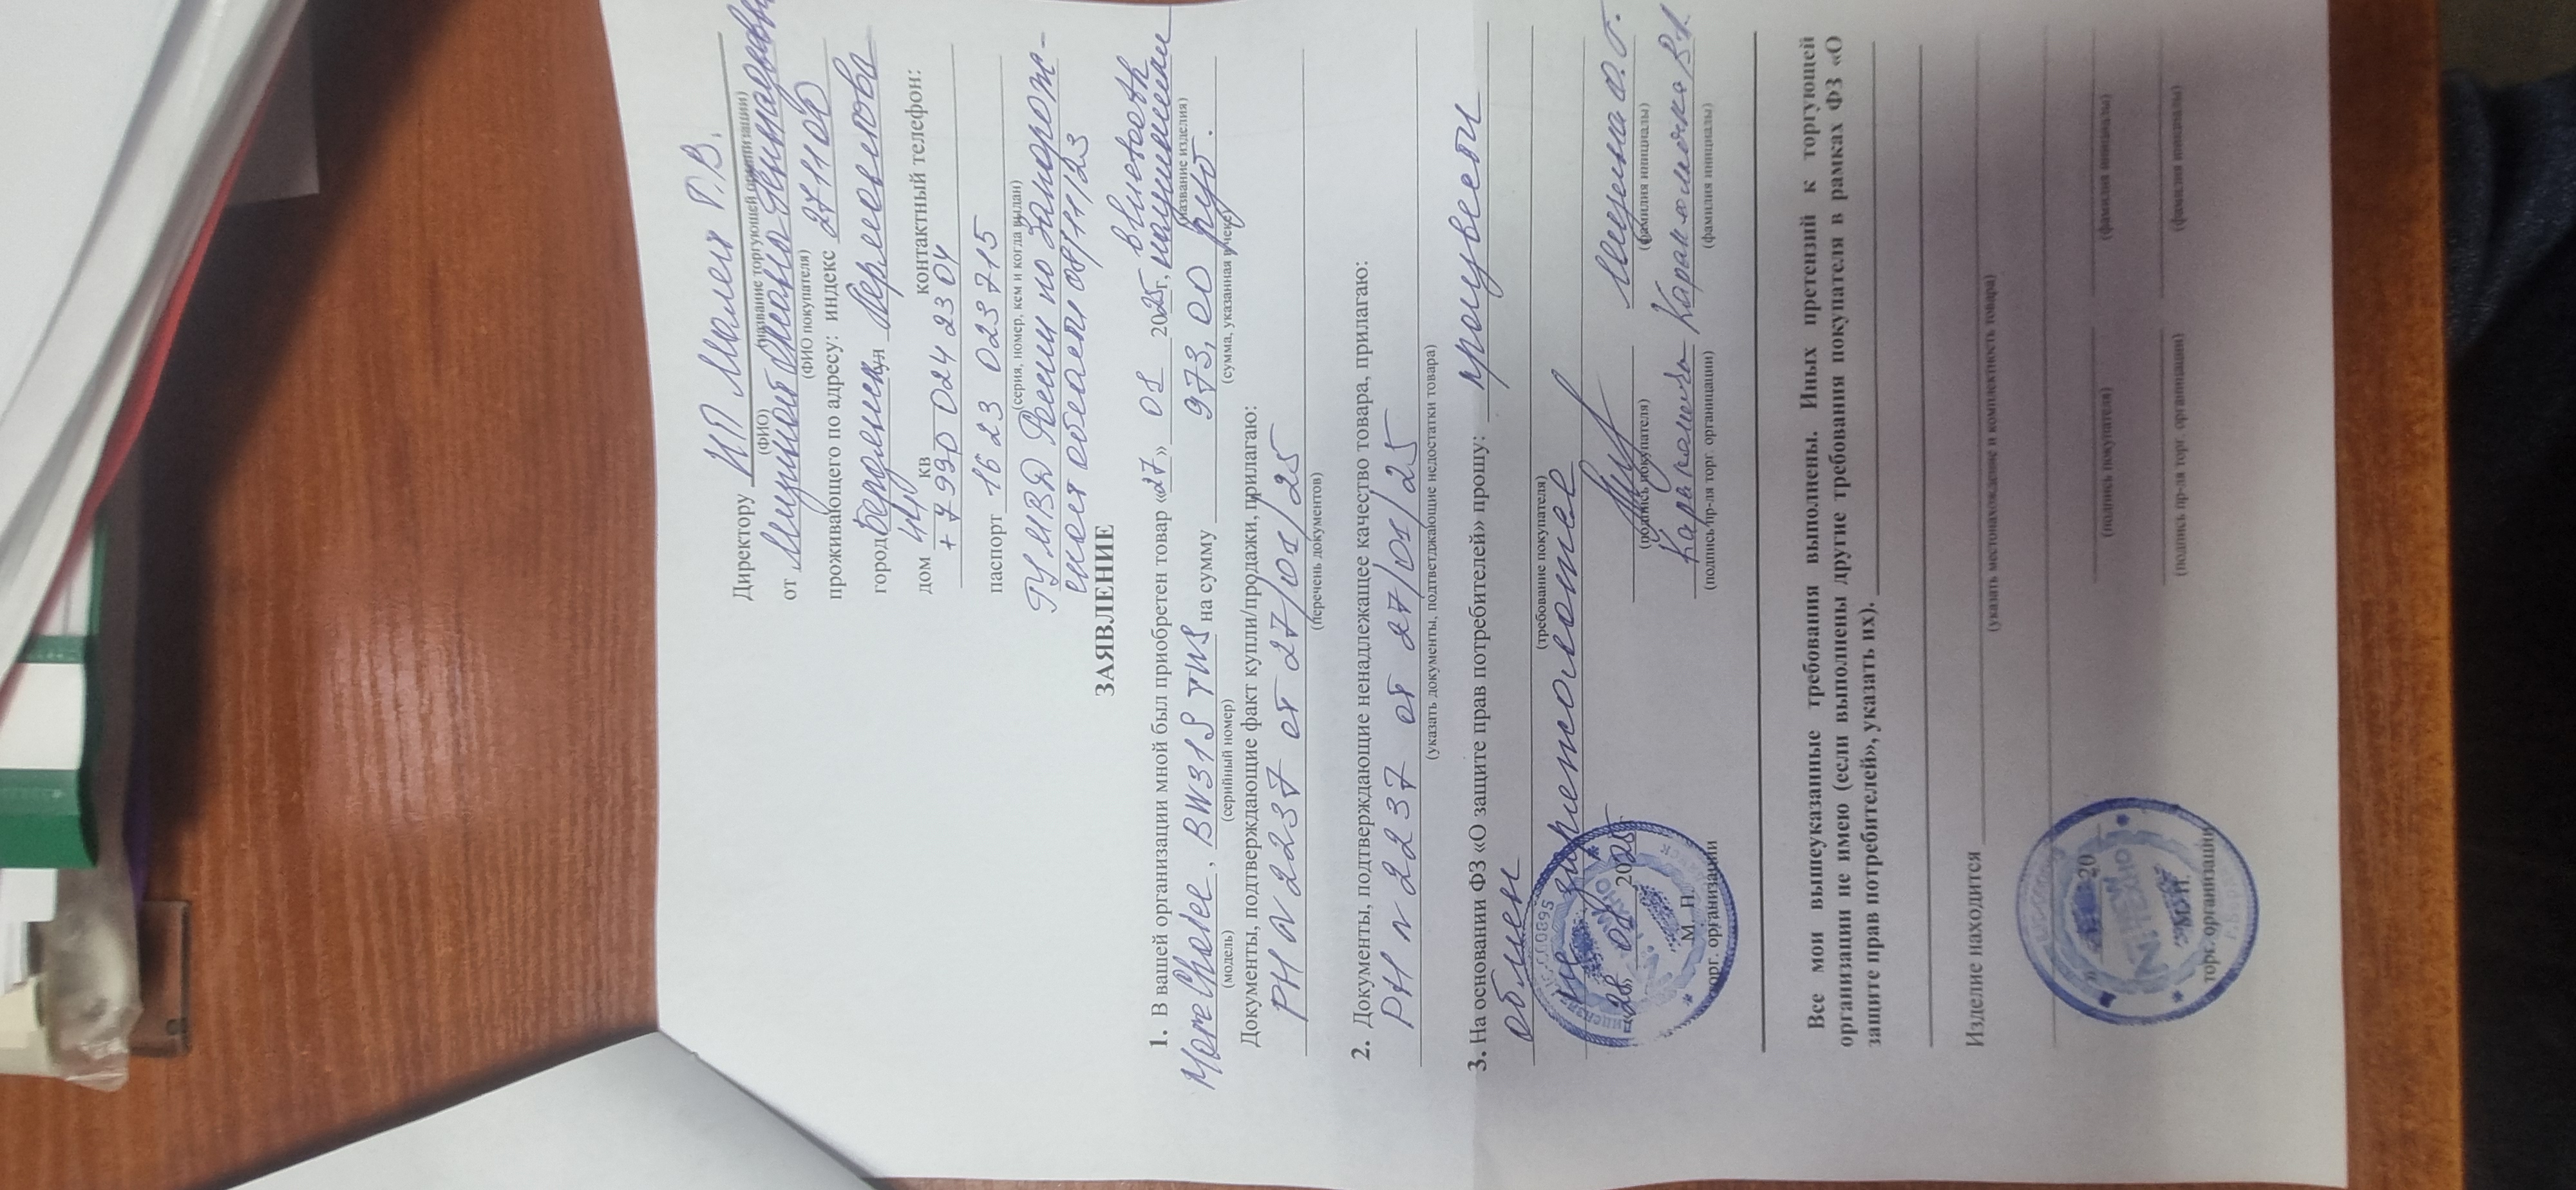 Директору ИП Малей Р.В.
(ФИО) (название торгующей организации)
от
(ФИО покупателя)
проживающего по адресу: индекс 271102
город Бердянск ул Лермонтова
дом 44 кв контактный телефон:
+7 990 024 23 04
паспорт 16 23 023715
(серия, номер, кем и когда выдан)
ГУ МВД России по Запорож-
ской области 08/11/23
ЗАЯВЛЕНИЕ
1. В вашей организации мной был приобретен товар «27» 01 2025г, Bluetooth наушники
(название изделия)
More Choice, BW31S TWS на сумму 973,00 руб.
(модель) (серийный номер) (сумма, указанная в чеке)
Документы, подтверждающие факт купли/продажи, прилагаю:
РН N 2237 от 27/01/25
(перечень документов)
2. Документы, подтверждающие ненадлежащее качество товара, прилагаю:
РН N 2237 от 27/01/25
(указать документы, подтверждающие недостатки товара)
3. На основании ФЗ «О защите прав потребителей» прошу: произвести
обмен
(требование покупателя)
«28» 01 2025
(подпись покупателя) (фамилия инициалы)
М. П.
торг. организации (подпись пр-ля торг. организации) (фамилия инициалы)
Все мои вышеуказанные требования выполнены. Иных претензий к торгующей
организации не имею (если выполнены другие требования покупателя в рамках ФЗ «О
защите прав потребителей», указать их).
Изделие находится
(указать местонахождение и комплектность товара)
20
(подпись покупателя) (фамилия инициалы)
М.П.
торг. организации (подпись пр-ля торг. организации) (фамилия инициалы)